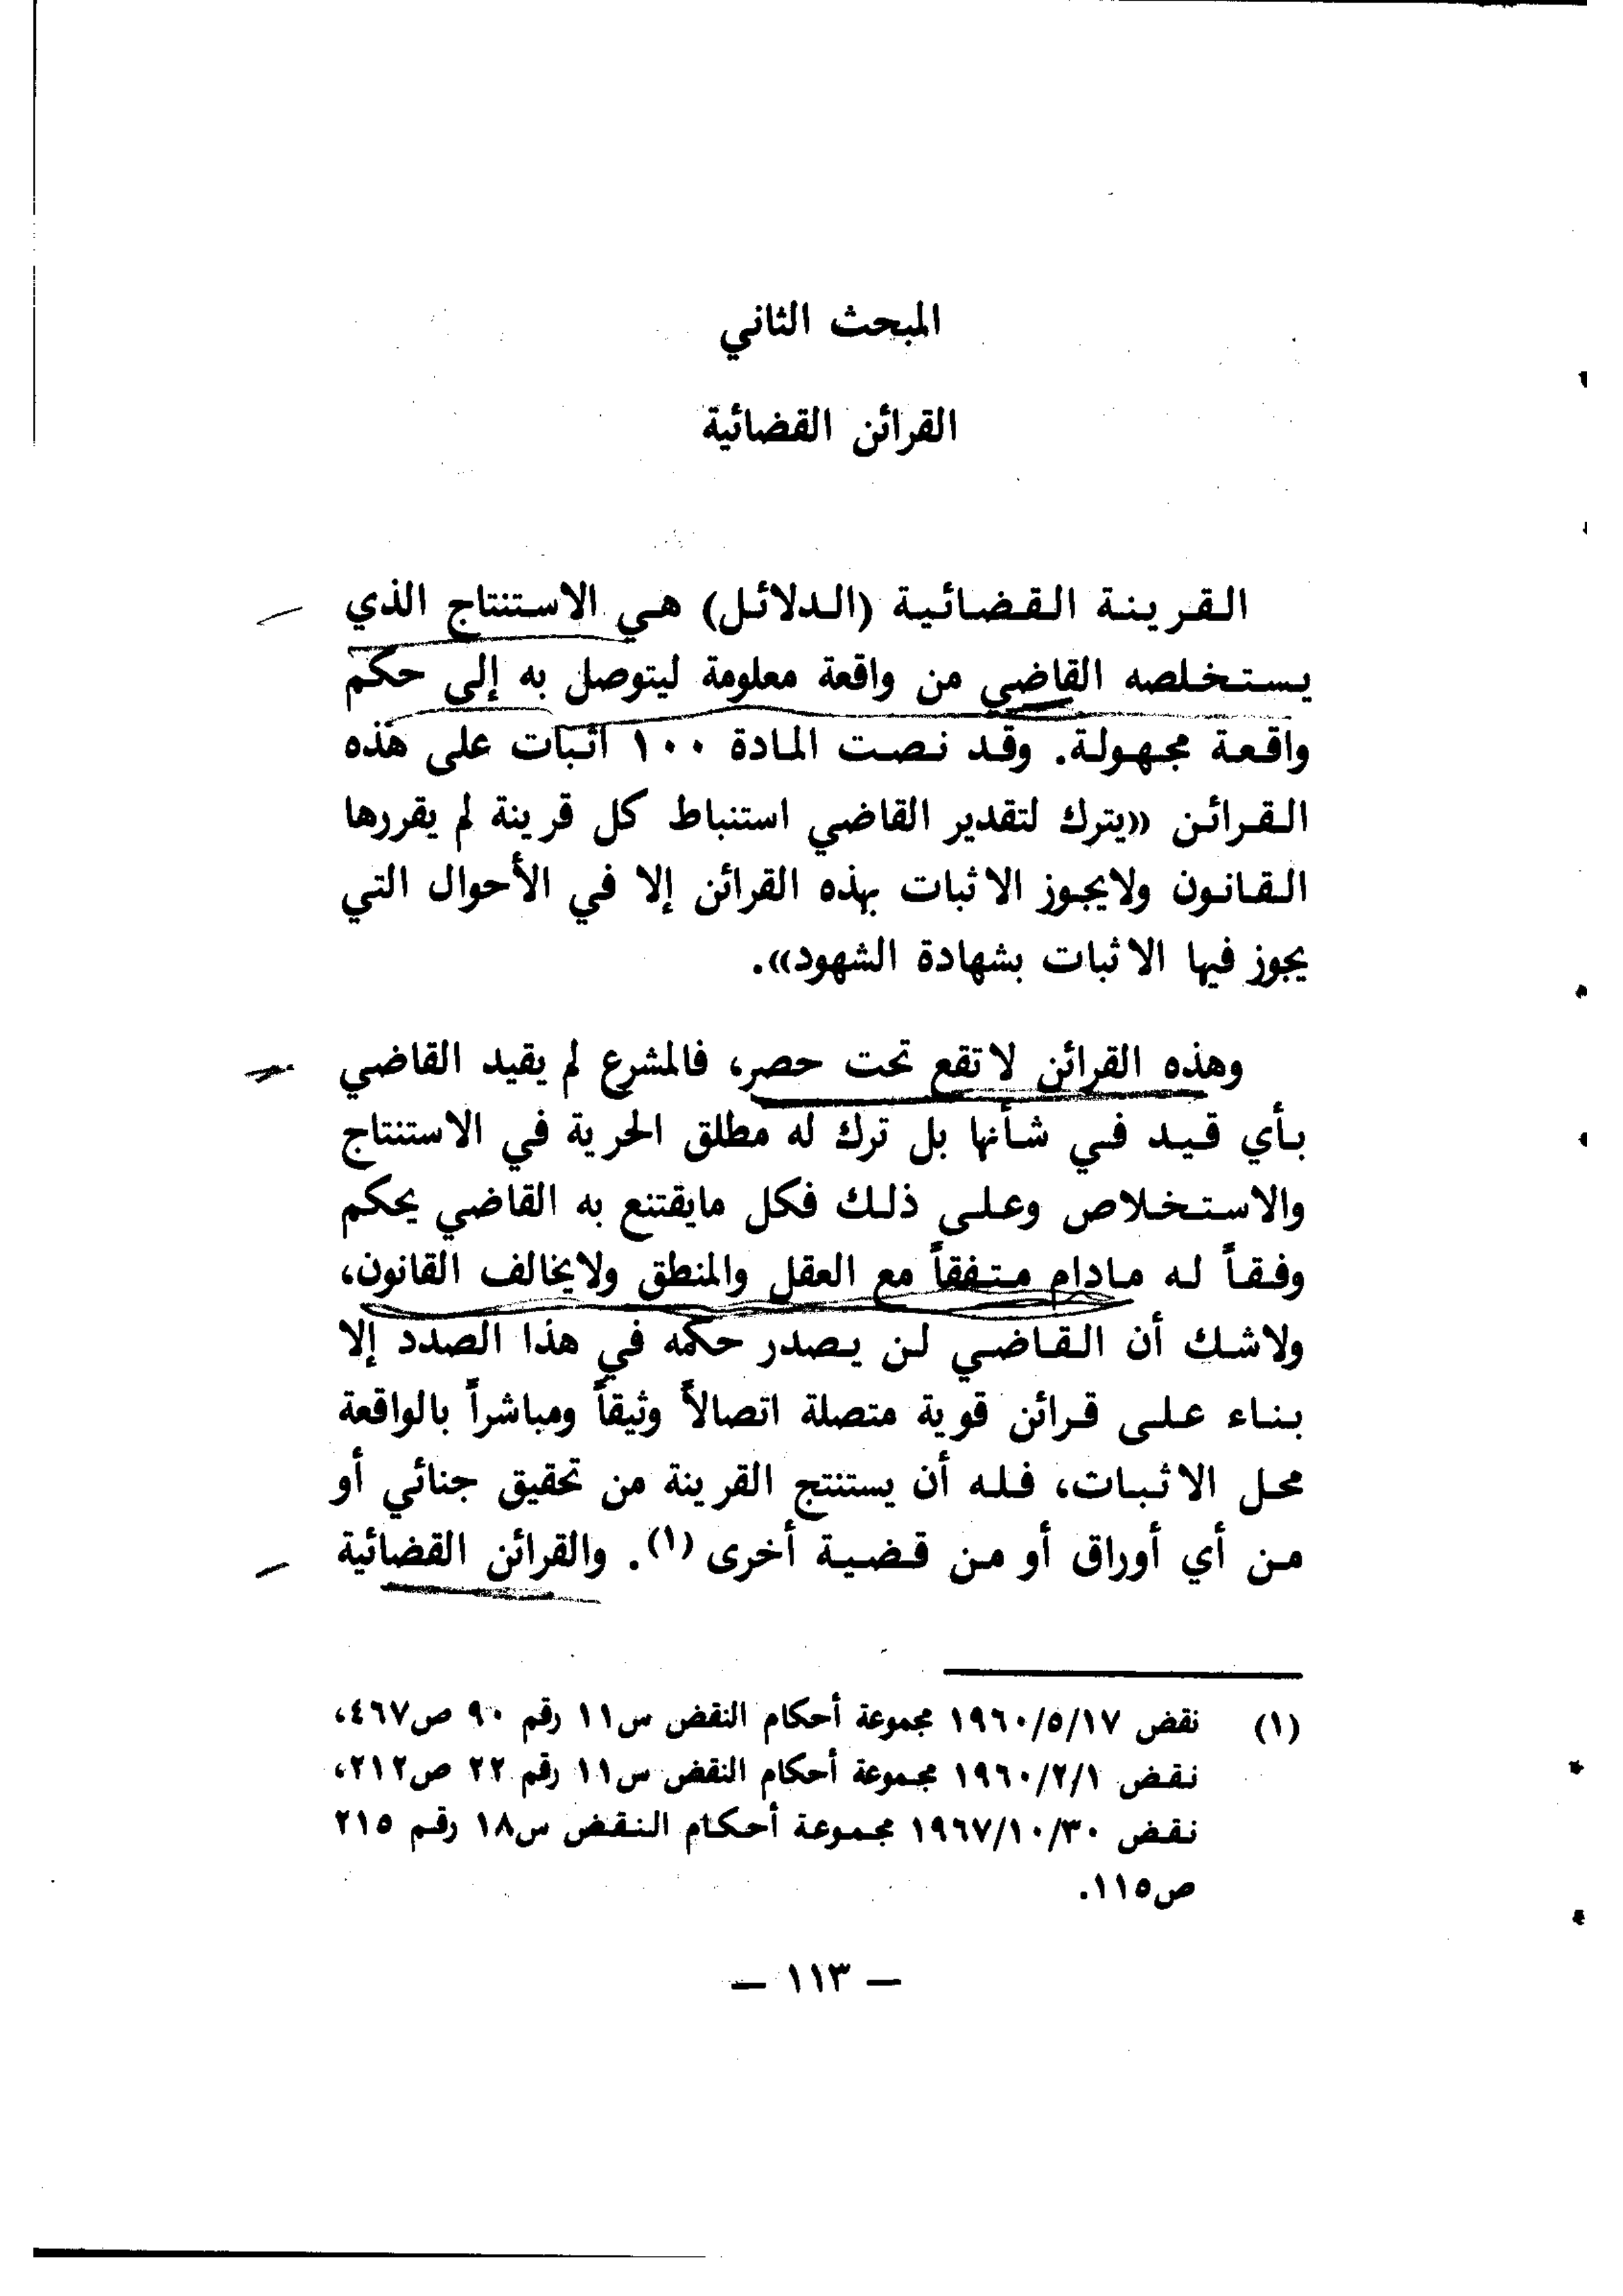 المبحث الثاني
القرائن القضائية
القرينة القضائية (الدلائل) هي الاستنتاج الذي
يستخلصه القاضي من واقعة معلومة ليتوصل به إلى حكم
واقعة مجهولة. وقد نصت المادة ١٠٠ اثبات على هذه
القرائن «يترك لتقدير القاضي استنباط كل قرينة لم يقررها
القانون ولايجوز الاثبات بهذه القرائن إلا في الأحوال التي
يجوز فيها الاثبات بشهادة الشهود».
وهذه القرائن لا تقع تحت حصر، فالمشرع لم يقيد القاضي
بأي قيد في شأنها بل ترك له مطلق الحرية في الاستنتاج
والاستخلاص وعلى ذلك فكل مايقتنع به القاضي يحكم
وفقاً له مادام متفقاً مع العقل والمنطق ولايخالف القانون،
ولاشك أن القاضي لن يصدر حكمه في هذا الصدد إلا
بناء على قرائن قوية متصلة اتصالاً وثيقاً ومباشراً بالواقعة
محل الاثبات، فله أن يستنتج القرينة من تحقيق جنائي أو
من أي أوراق أو من قضية أخرى (١). والقرائن القضائية
(١) نقض ١٩٦٠/٥/١٧ مجموعة أحكام النقض س١١ رقم ٩٠ ص٤٦٧،
نقض ١٩٦٠/٢/١ مجموعة أحكام النقض س١١ رقم ٢٢ ص٢١٢،
نقض ١٩٦٧/١٠/٣٠ مجموعة أحكام النقض س١٨ رقم ٢١٥
ص١١٥.
— ١١٣ —